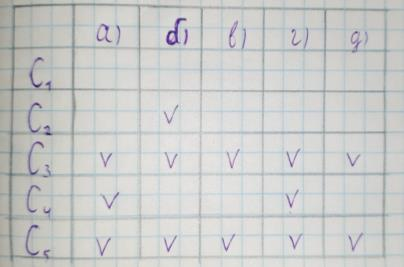 а) б) в) г) д)
C₁
C₂ V
C₃ V V V V V
C₄ V V
C₅ V V V V V